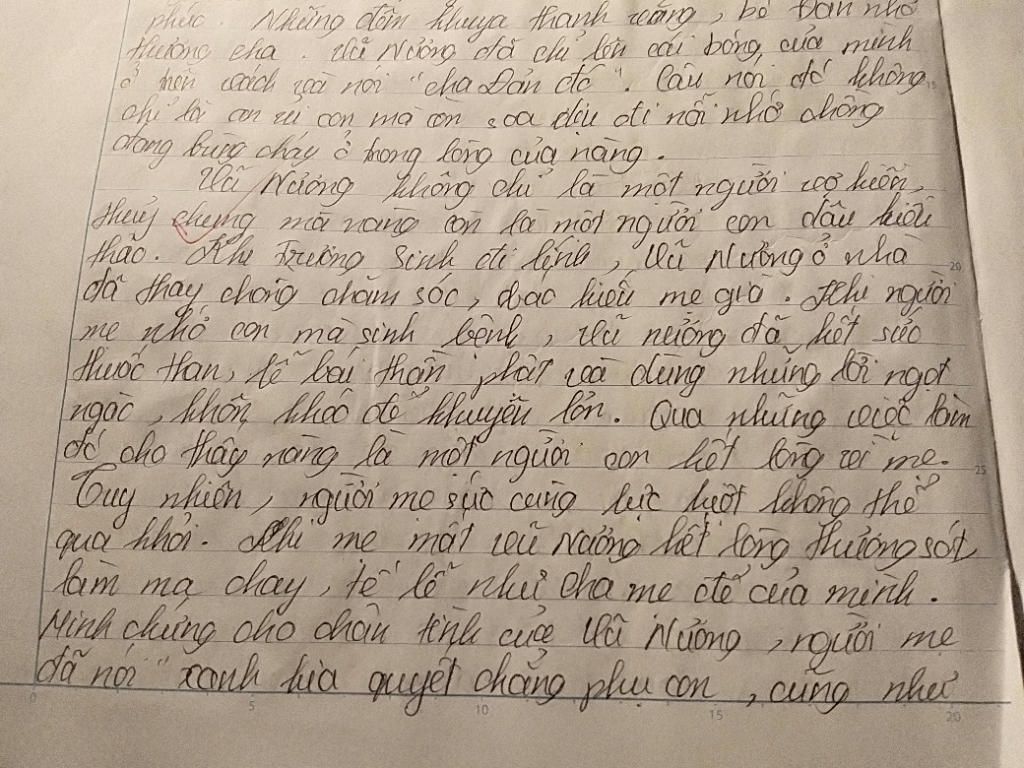 phúc. Những đêm khuya thanh vắng, bé Đản nhớ
thương cha. Vũ Nương đã chỉ lên cái bóng của mình
ở trên vách và nói "cha Đản đó". Câu nói đó không
chỉ là an ủi con mà còn xoa dịu đi nỗi nhớ chồng
đang bùng cháy ở trong lòng của nàng.
Vũ Nương không chỉ là một người vợ hiền,
thuỷ chung mà nàng còn là một người con dâu hiếu
thảo. Khi Trương Sinh đi lính, Vũ Nương ở nhà
đã thay chồng chăm sóc, báo hiếu mẹ già. Khi người
mẹ nhớ con mà sinh bệnh, Vũ nương đã hết sức
thuốc than, tế bái thần phật và dùng những lời ngọt
ngào, khôn khéo để khuyên lơn. Qua những việc làm
đó cho thấy nàng là một người con hết lòng vì mẹ.
Tuy nhiên, người mẹ sức cùng lực kiệt không thể
qua khỏi. Khi mẹ mất Vũ Nương hết lòng thương sót,
làm ma chay, tế lễ như cha mẹ đẻ của mình.
Minh chứng cho chân tình của Vũ Nương, người mẹ
đã nói "xanh kia quyết chẳng phụ con, cũng như
5 10 15 20
20
25